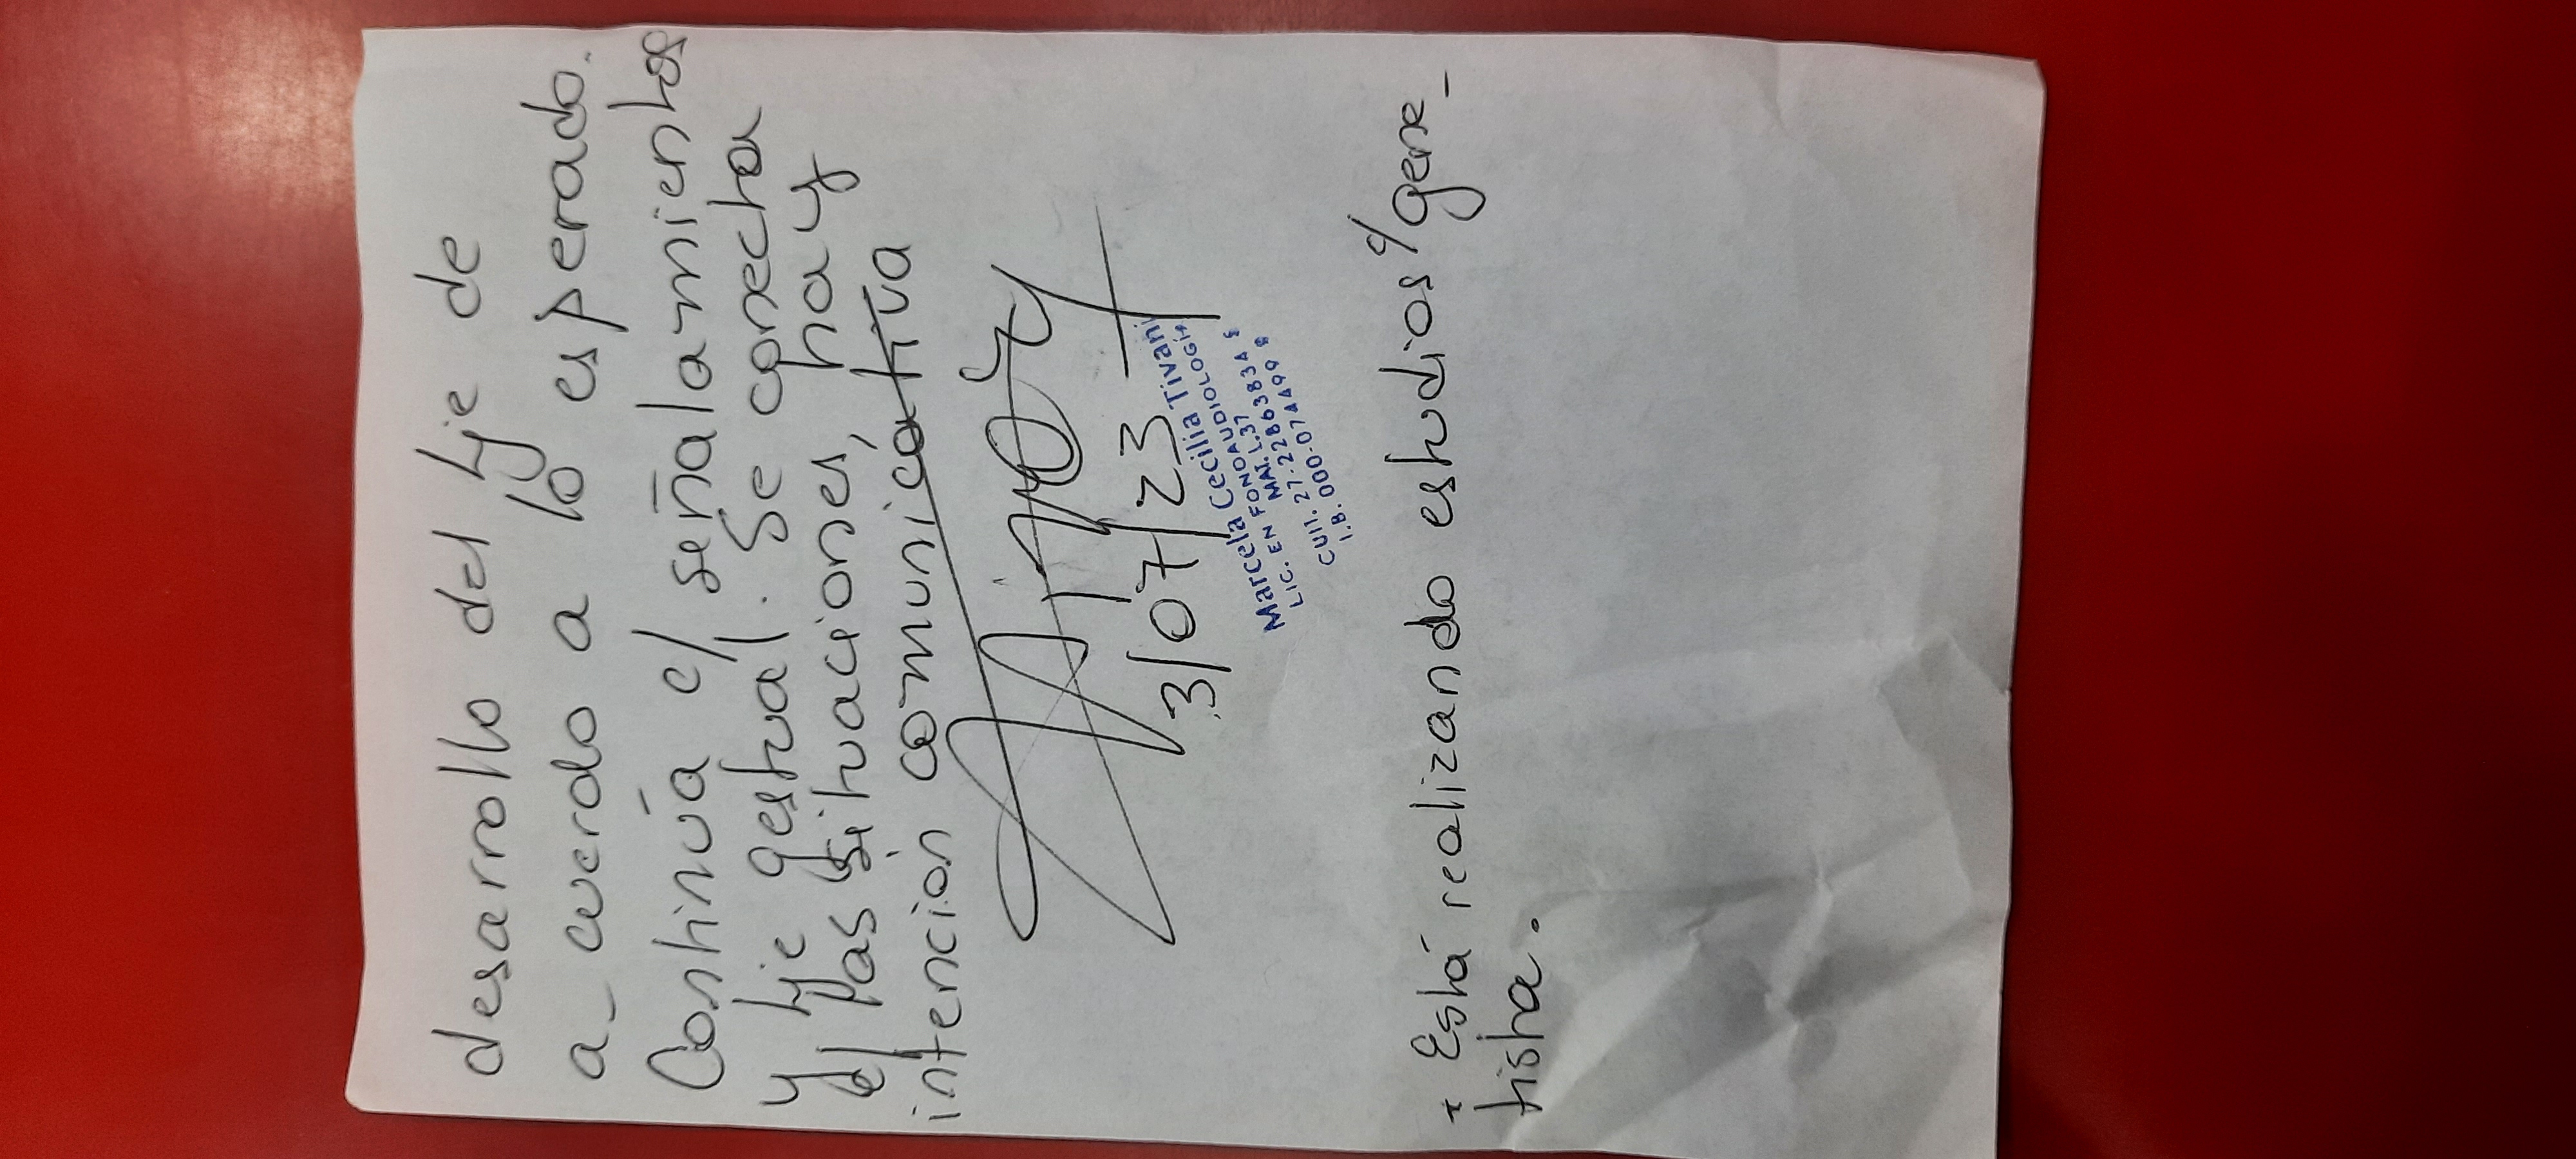 desarrollo del lje de
a_ cuerdo a lo esperado.
Continúa c/ señalamientos
y lje gestual. Se conecta
c/ las situaciones, hay
intención comunicativa
3/07/23
Marcela Cecilia Tivani
LIC. EN FONOAUDIOLOGÍA
MAT. L.37
CUIT. 27-22863834
I.B. 000-0744499
* Está realizando estudios c/ gene_
tista.